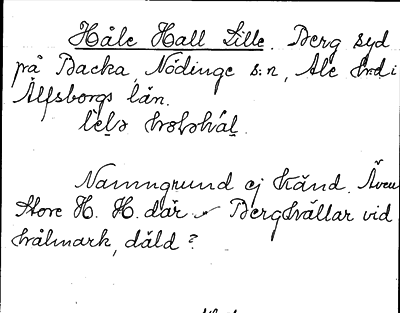 Håle Hall Lille. Berg syd
på Backa, Nödinge s:n, Ale hrd i
Älfsborgs län.
Namngrund ej känd. Även
Store H. H. där. Berghällar vid
hålmark, däld?